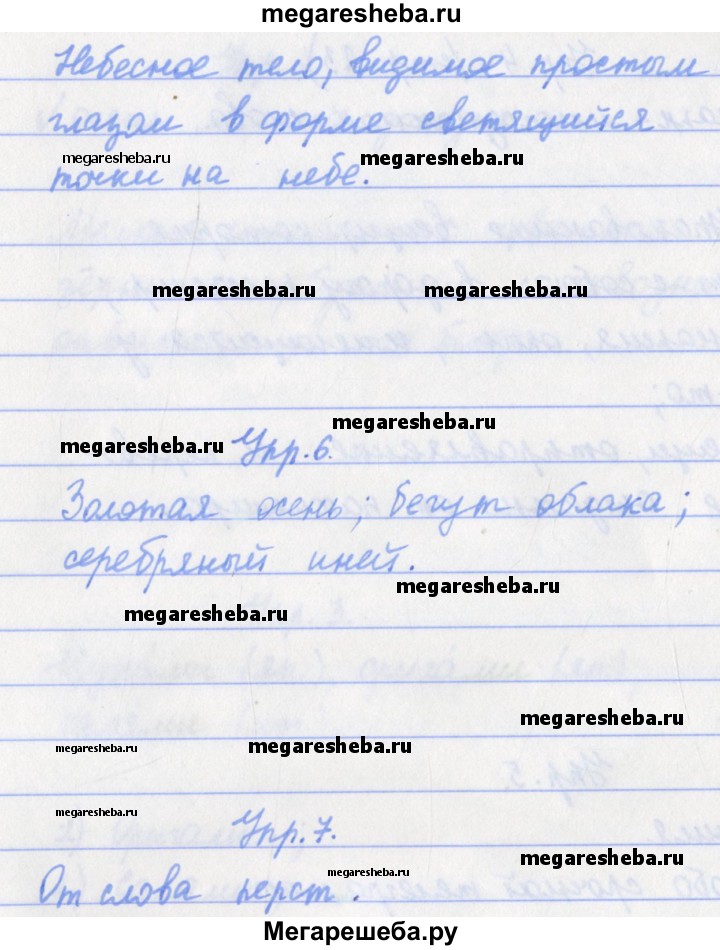 megaresheba.ru
Небесное тело, видимое простым
глазом в форме светящийся
megaresheba.ru megaresheba.ru
точки на небе.
megaresheba.ru megaresheba.ru
megaresheba.ru
megaresheba.ru Упр.6.
Золотая осень; бегут облака;
серебряный иней.
megaresheba.ru
megaresheba.ru
megaresheba.ru
megaresheba.ru megaresheba.ru
megaresheba.ru
Упр.7.
megaresheba.ru
megaresheba.ru
От слова перст.
Мегарешеба.ру